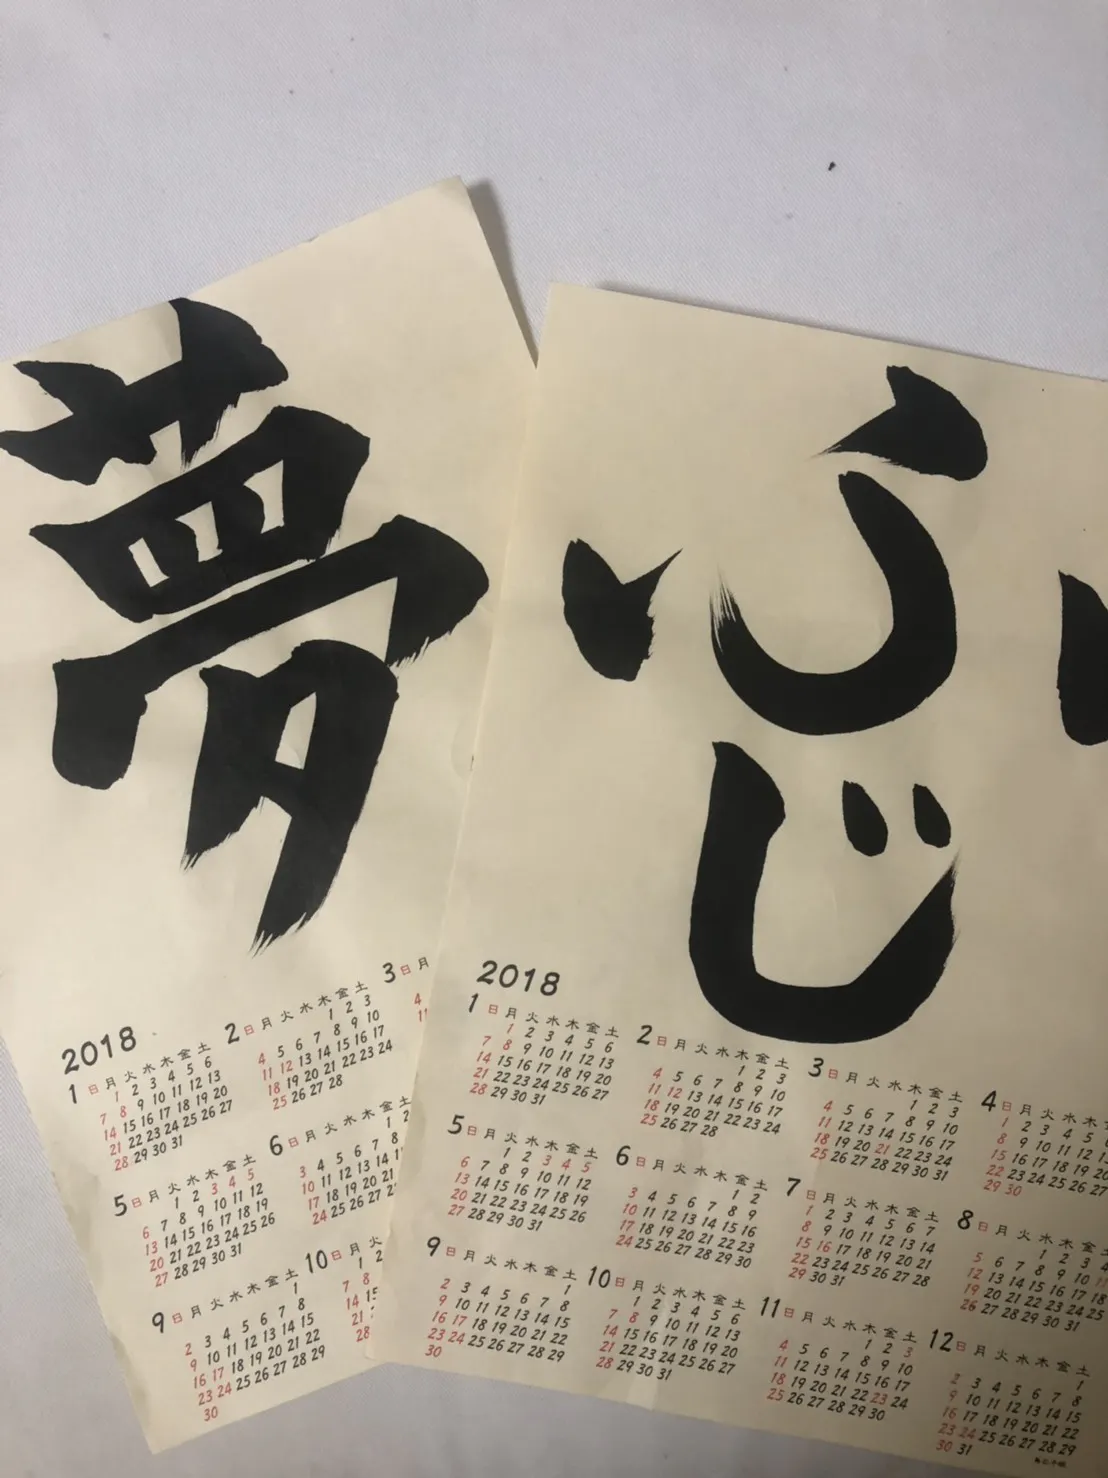 夢
2018
1 日 月 火 水 木 金 土
1 2 3 4 5 6
7 8 9 10 11 12 13
14 15 16 17 18 19 20
21 22 23 24 25 26 27
28 29 30 31
2 日 月 火 水 木 金 土
1 2 3
4 5 6 7 8 9 10
11 12 13 14 15 16 17
18 19 20 21 22 23 24
25 26 27 28
3 日 月
4
11
5 日 月 火 水 木 金 土
1 2 3 4 5
6 7 8 9 10 11 12
13 14 15 16 17 18 19
20 21 22 23 24 25 26
27 28 29 30 31
6 日 月 火 水 木 金
1 2
3 4 5 6 7 8
10 11 12 13 14
17 18 19 20 21
24 25 26 27
9 日 月 火 水 木 金 土
1
2 3 4 5 6 7 8
9 10 11 12 13 14 15
16 17 18 19 20 21 22
23 24 25 26 27 28 29
30
10 日 月 火
1 2
7 8
14 15
21
28
ふじ
2018
1 日 月 火 水 木 金 土
1 2 3 4 5 6
7 8 9 10 11 12 13
14 15 16 17 18 19 20
21 22 23 24 25 26 27
28 29 30 31
2 日 月 火 水 木 金 土
1 2 3
4 5 6 7 8 9 10
11 12 13 14 15 16 17
18 19 20 21 22 23 24
25 26 27 28
3 日 月 火 水 木 金 土
1 2 3
4 5 6 7 8 9 10
11 12 13 14 15 16 17
18 19 20 21 22 23 24
25 26 27 28 29 30 31
4 日 月 火 水 木
1 2 3 4 5 6
8 9 10 11 12
15 16 17 18 19
22 23 24 25 26 27
29 30
5 日 月 火 水 木 金 土
1 2 3 4 5
6 7 8 9 10 11 12
13 14 15 16 17 18 19
20 21 22 23 24 25 26
27 28 29 30 31
6 日 月 火 水 木 金 土
1 2
3 4 5 6 7 8 9
10 11 12 13 14 15 16
17 18 19 20 21 22 23
24 25 26 27 28 29 30
7 日 月 火 水 木 金 土
1 2 3 4 5 6 7
8 9 10 11 12 13 14
15 16 17 18 19 20 21
22 23 24 25 26 27 28
29 30 31
8 日 月 火 水 木 金
1 2 3 4
5 6 7 8 9 10 11
12 13 14 15 16 17 18
19 20 21 22 23 24 25
26 27 28 29 30 31
9 日 月 火 水 木 金 土
1
2 3 4 5 6 7 8
9 10 11 12 13 14 15
16 17 18 19 20 21 22
23 24 25 26 27 28 29
30
10 日 月 火 水 木 金 土
1 2 3 4 5 6
7 8 9 10 11 12 13
14 15 16 17 18 19 20
21 22 23 24 25 26 27
28 29 30 31
11 日 月 火 水 木 金 土
1 2 3
4 5 6 7 8 9 10
11 12 13 14 15 16 17
18 19 20 21 22 23 24
25 26 27 28 29 30
12 日 月 火 水 木 金 土
1
2 3 4 5 6 7 8
9 10 11 12 13 14 15
16 17 18 19 20 21 22
23 24 25 26 27 28 29
30 31